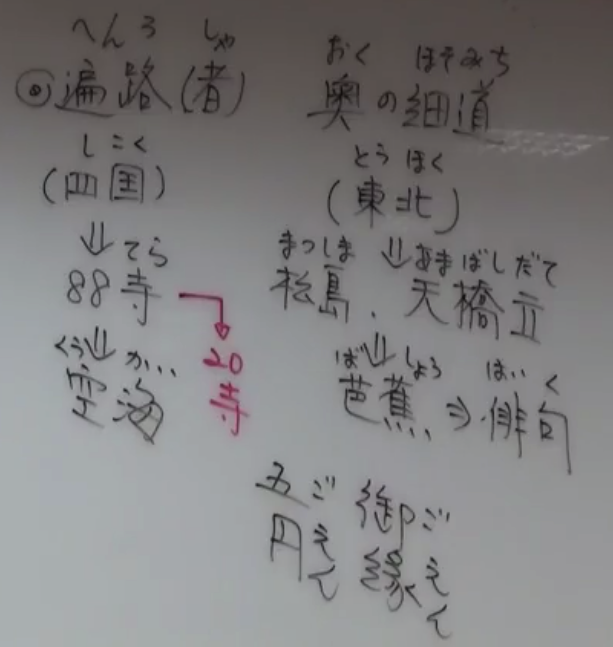 へんろ しゃ
◎遍路(者)
しこく
(四国)
⇓ てら
88寺 → 20寺
くう⇓かい
空海
おく ほそみち
奥の細道
とうほく
(東北)
まつしま ⇓ あまばしだて
松島、天橋立
ば⇓しょう はいく
芭蕉⇒俳句
五ご 御ご
円えん 縁えん